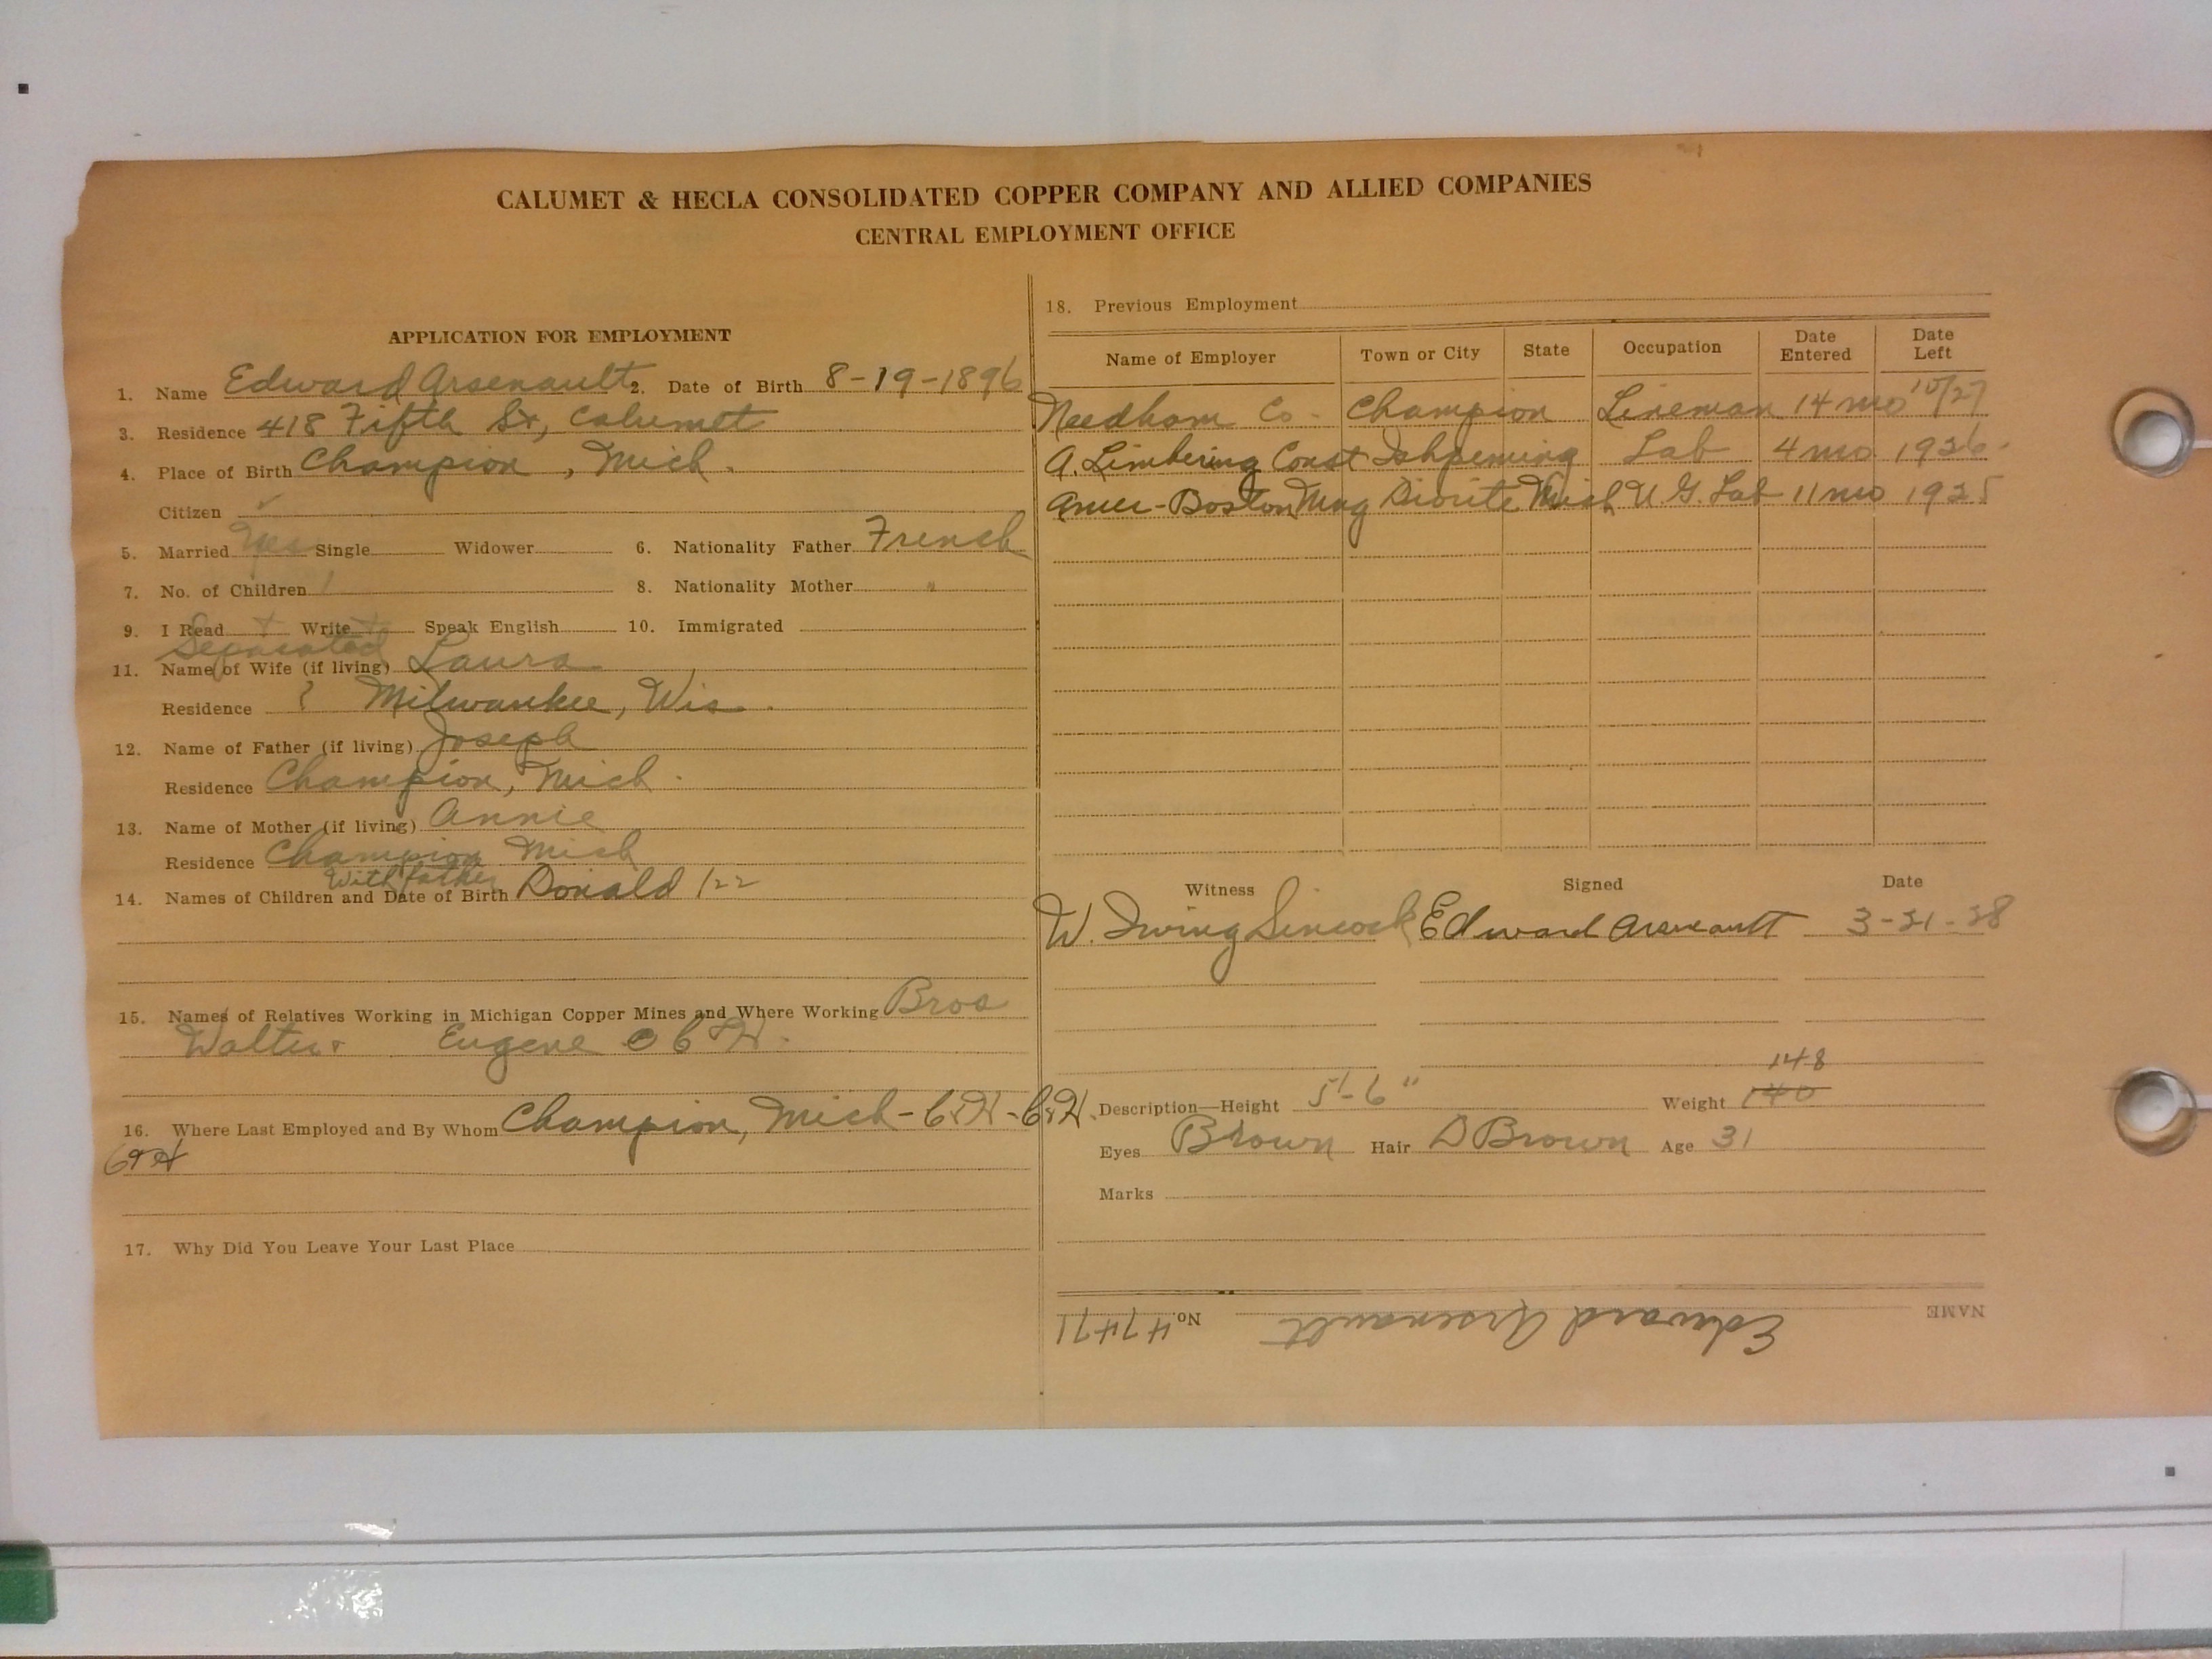 CALUMET & HECLA CONSOLIDATED COPPER COMPANY AND ALLIED COMPANIES
CENTRAL EMPLOYMENT OFFICE
APPLICATION FOR EMPLOYMENT
1. Name Edward Arsenault 2. Date of Birth 8-19-1896
3. Residence 418 Fifth St, Calumet
4. Place of Birth Champion, Mich.
Citizen ✓
5. Married Yes Single Widower 6. Nationality Father French
7. No. of Children 1 8. Nationality Mother "
9. I Read + Write + Speak English 10. Immigrated
Separated
11. Name of Wife (if living) Laura
Residence ? Milwaukee, Wis.
12. Name of Father (if living) Joseph
Residence Champion, Mich.
13. Name of Mother (if living) Annie
Residence Champion Mich
With father
14. Names of Children and Date of Birth Donald 1
15. Names of Relatives Working in Michigan Copper Mines and Where Working Bros
Walter + Eugene C&H.
16. Where Last Employed and By Whom Champion, Mich - C&H - C&H.
C&H
17. Why Did You Leave Your Last Place
18. Previous Employment
Name of Employer Town or City State Occupation Date Entered Date Left
Needham Co. Champion Lineman 14 mo 10/27
A. Limbering Const Ishpeming Lab 4 mo 1926.
Amer-Boston Mng Diorite Mich U G. Lab 11 mo 1925
Witness Signed Date
W. Irving Sincock Edward Arseneault 3-31-28
148
Description—Height 5'-6" Weight 140
Eyes Brown Hair D Brown Age 31
Marks
NAME Edward Arsenault No. 47471